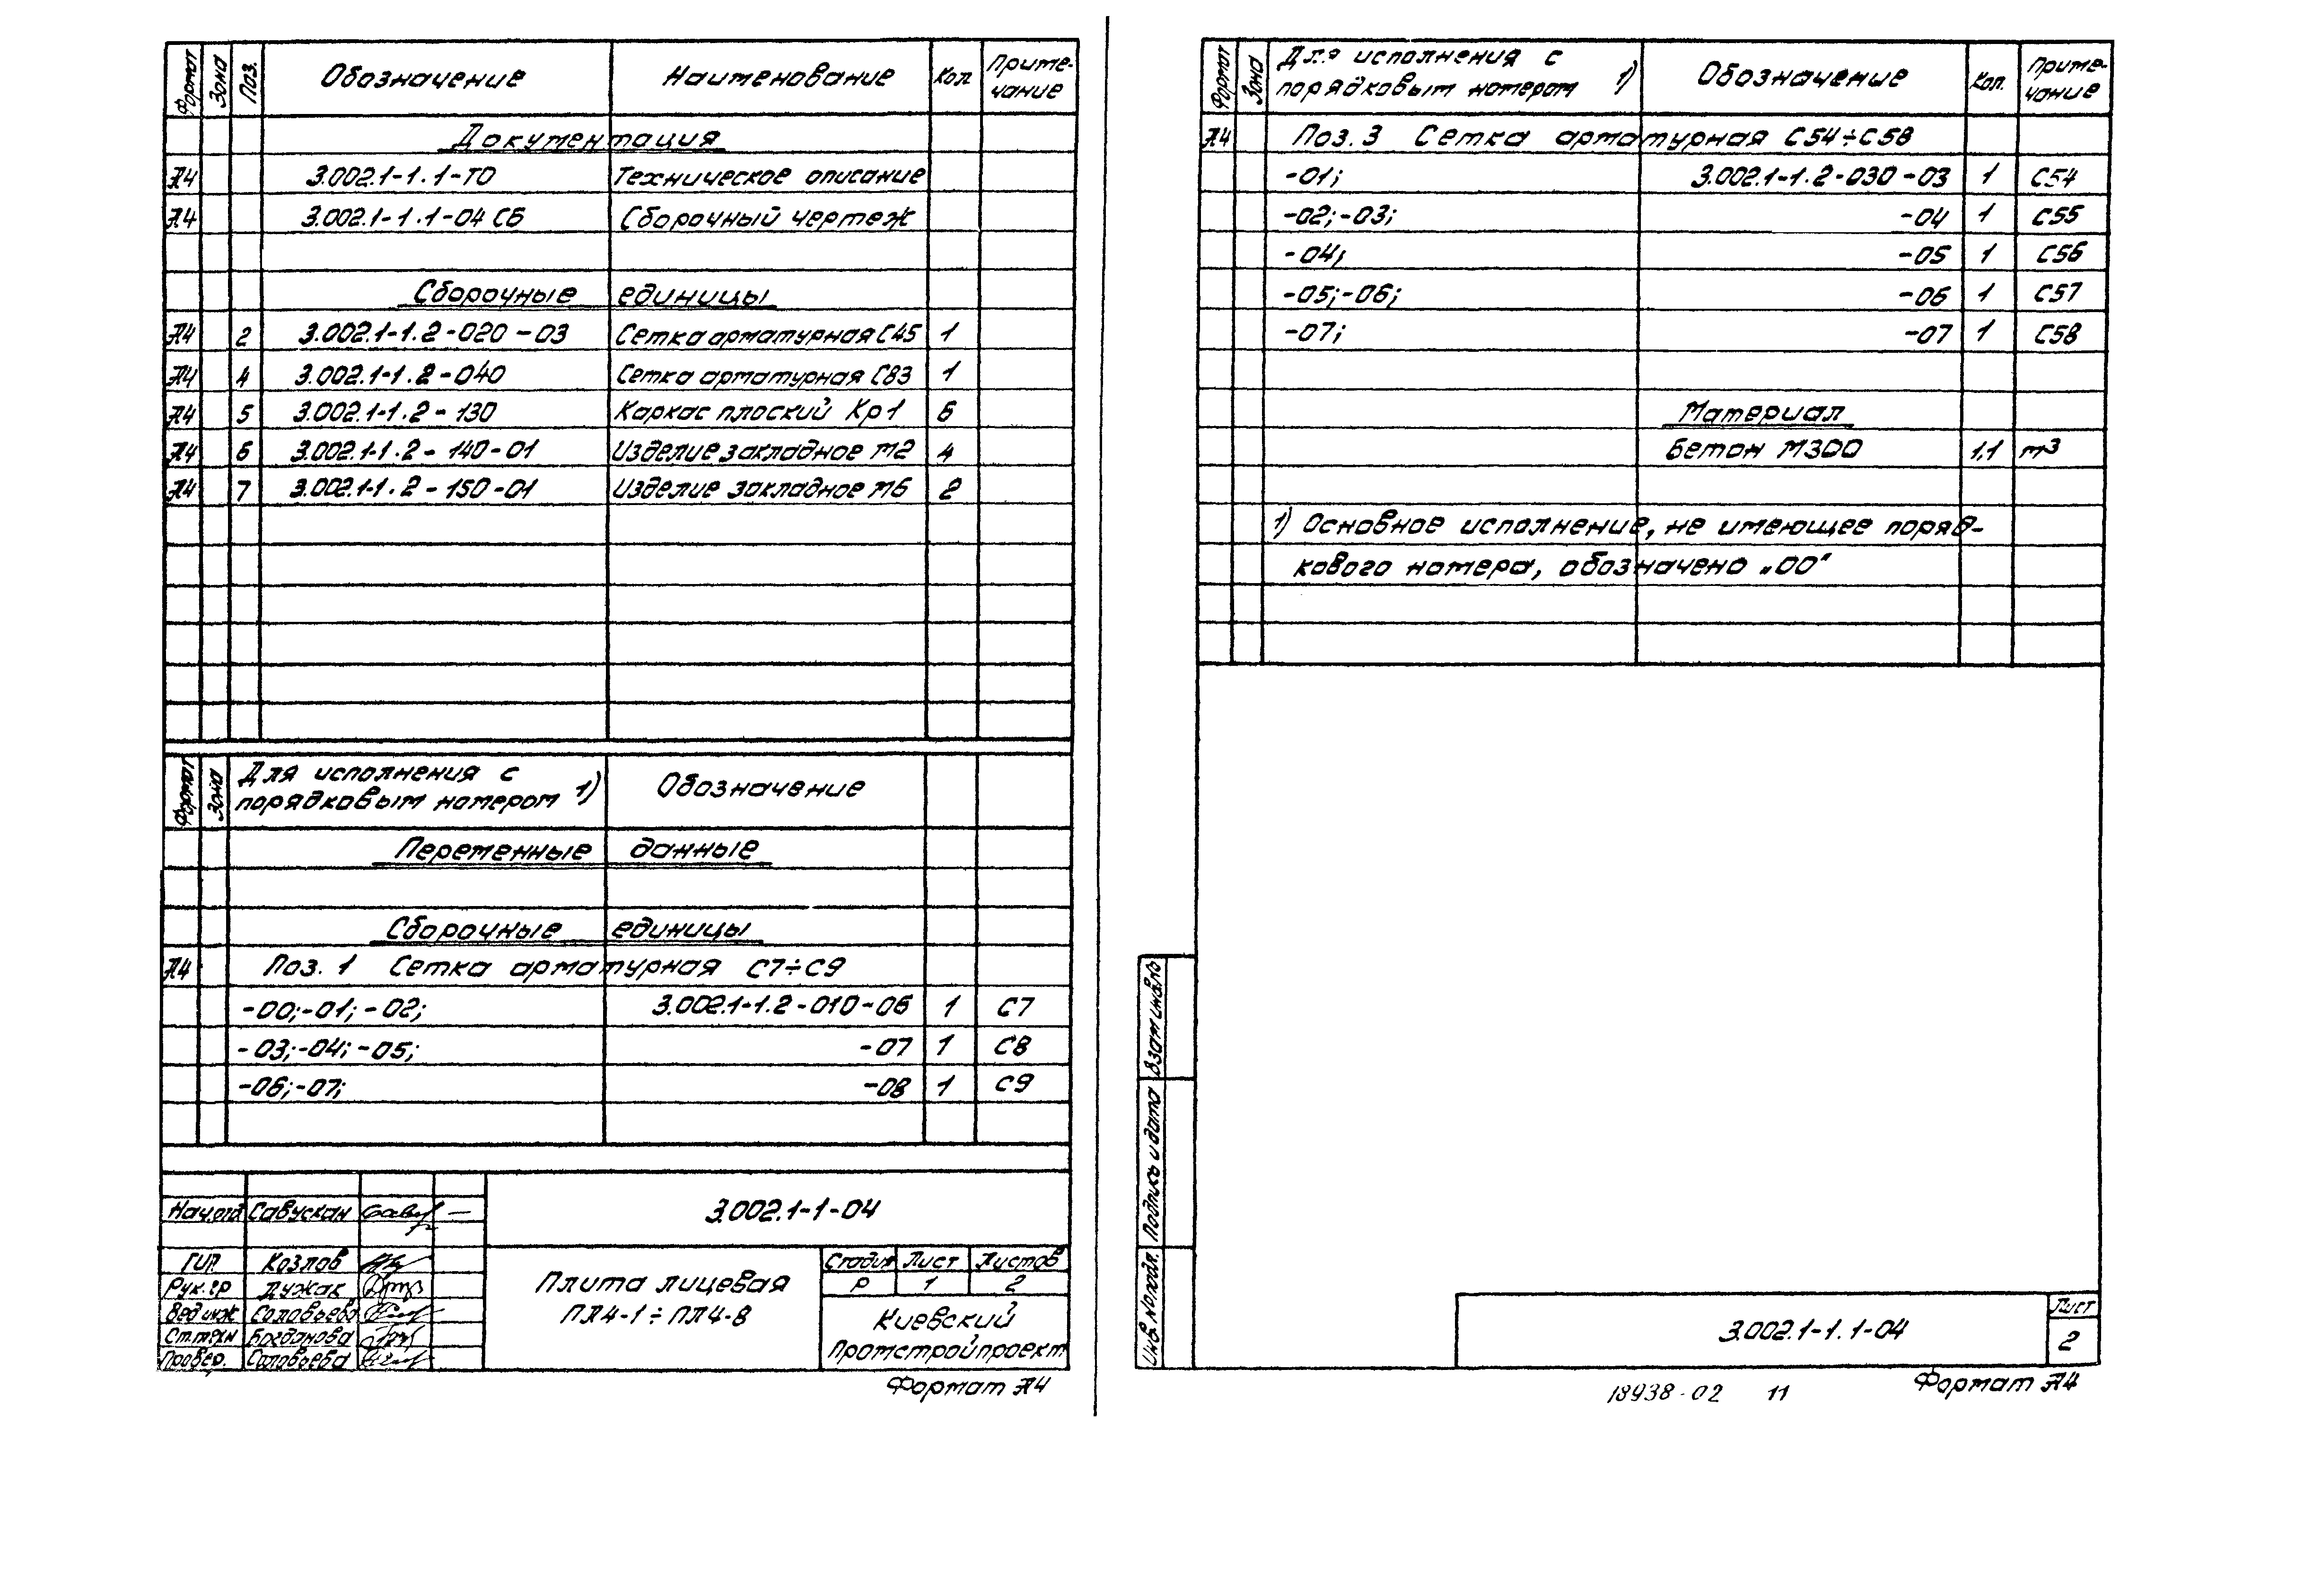 Формат Зона Поз. Обозначение Наименование Кол. Приме-
чание
Документация
А4 3.002.1-1.1-ТО Техническое описание
А4 3.002.1-1.1-04 СБ Сборочный чертеж
Сборочные единицы
А4 2 3.002.1-1.2-020-03 Сетка арматурная С45 1
А4 4 3.002.1-1.2-040 Сетка арматурная С83 1
А4 5 3.002.1-1.2-130 Каркас плоский Кр1 6
А4 6 3.002.1-1.2-140-01 Изделие закладное М2 4
А4 7 3.002.1-1.2-150-01 Изделие закладное М6 2
Формат Зона Для исполнения с Обозначение
порядковым номером 1)
Переменные данные
Сборочные единицы
А4 Поз. 1 Сетка арматурная С7÷С9
-00;-01;-02; 3.002.1-1.2-010-06 1 С7
-03;-04;-05; -07 1 С8
-06;-07; -08 1 С9
Нач.отд Савускан —
3.002.1-1-04
ГИП Козлов
Рук.гр Лужак
Вед инж Соловьева
Ст.техн Богданова
Провер. Соловьева
Плита лицевая
ПЛ4-1÷ПЛ4-8
Стадия Лист Листов
Р 1 2
Киевский
Промстройпроект
Формат А4
Формат Зона Для исполнения с Обозначение Кол. Приме-
порядковым номером 1) чание
А4 Поз. 3 Сетка арматурная С54÷С58
-01; 3.002.1-1.2-030-03 1 С54
-02;-03; -04 1 С55
-04; -05 1 С56
-05;-06; -06 1 С57
-07; -07 1 С58
Материал
Бетон М300 1,1 м3
1) Основное исполнение, не имеющее поряд-
кового номера, обозначено „00"
Инв.№ подл. Подпись и дата Взам инв.№
3.002.1-1.1-04
Лист
2
Формат А4
18938-02 11